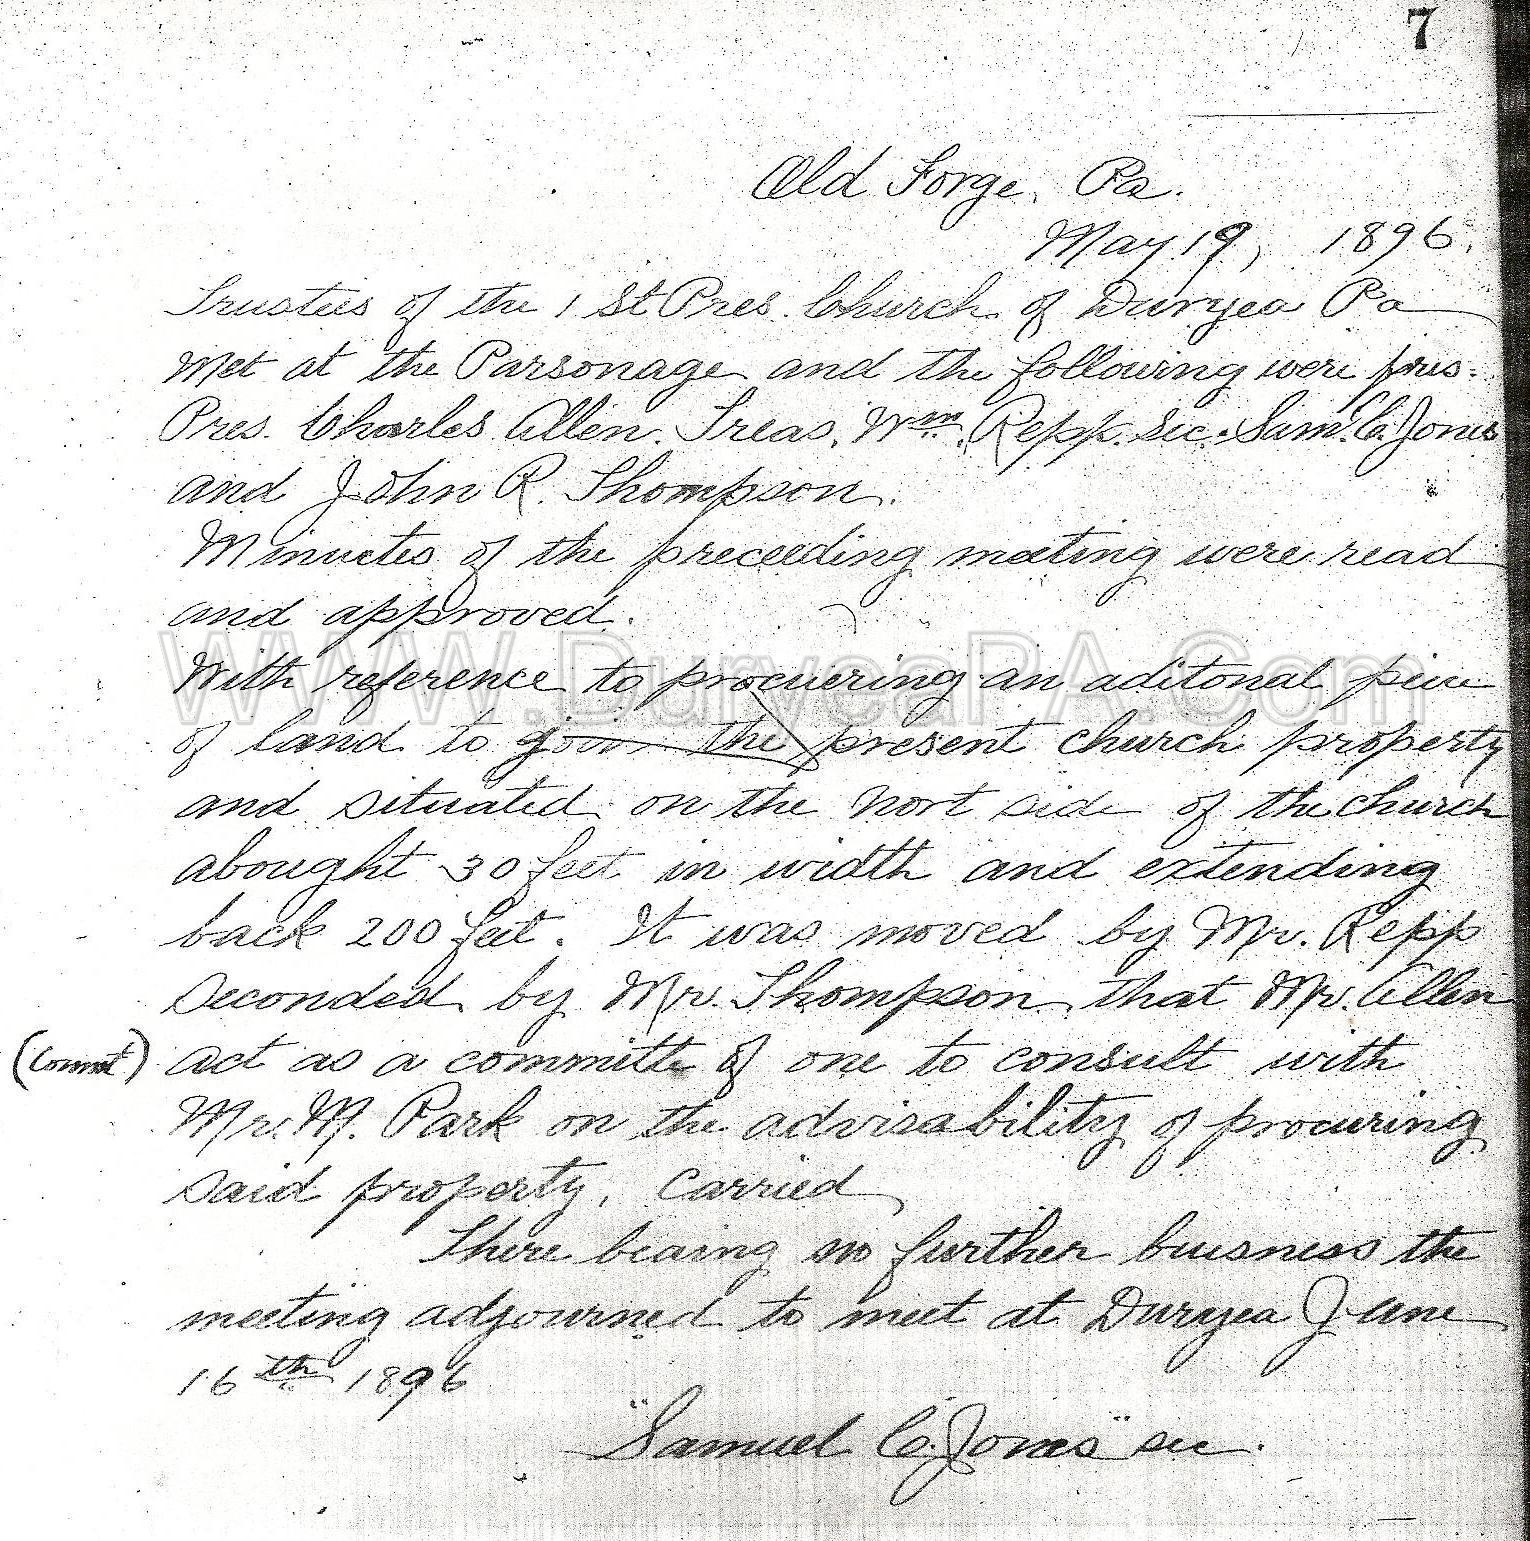 7
Old Forge, Pa.
May 19, 1896.
Trustees of the 1 St Pres. Church of Duryea Pa
Met at the Parsonage and the following were pres.
Pres. Charles Allen. Treas. Wm. Repp. Sec. Sam. C. Jones
and John R. Thompson.
Minuetes of the preceeding meeting were read
and approved.
WWW.DuryeaPA.Com
With reference to procuering an aditonal piece
of land to join the present church property
and situated on the nort side of the church
abought 30 feet in width and extending
back 200 feet. It was moved by Mr. Repp
seconded by Mr. Thompson that Mr. Allen
(Commt) act as a committe of one to consult with
Mr. M. Park on the advisability of procuring
said property, Carried
There beaing no further buisness the
meeting adjourned to meet at Duryea June
16th 1896
"Samuel C. Jones" sec.